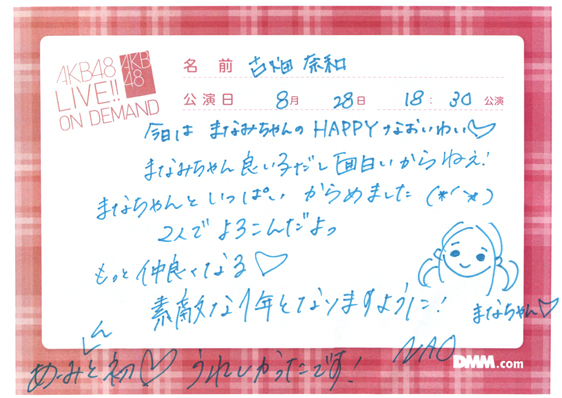 AKB48
LIVE!!
ON DEMAND
AKB
48
名前 古畑奈和
公演日 8月 28日 18:30 公演
今日は まなみちゃんの HAPPYなおいわい♡
まなみちゃん良い子だし面白いからねぇ!
まなちゃんといっぱい からめました
2人で よろこんだよっ
もっと仲良くなる♡
素敵な1年となりますように!
まなちゃん♡
めーみと初♡ うれしかったです!
NAO
DMM.com